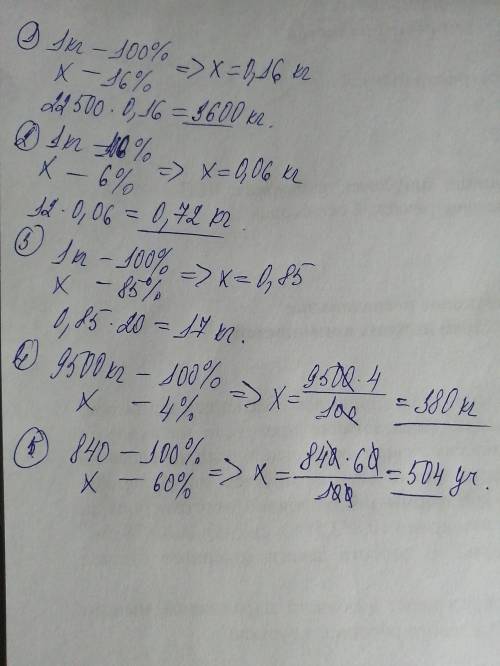 1 1кг – 100%
х – 16% => х = 0,16 кг
22500 · 0,16 = 3600 кг.
2 1кг – %
х – 6% => х = 0,06 кг
12 · 0,06 = 0,72 кг.
3 1кг – 100%
х – 85% => х = 0,85
0,85 · 20 = 17 кг.
4 9500кг – 100%
х – 4% => х = 9500 · 4 / 100 = 380 кг
5 840 – 100%
х – 60% => х = 840 · 60 / 100 = 504 уч.